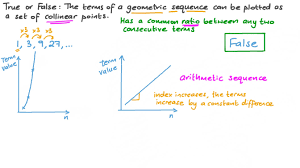 True or False: The terms of a geometric sequence can be plotted as
a set of collinear points.
Has a common ratio between any two
consecutive terms
False
x3 x3 x3
1, 3, 9, 27, ...
Terms
value
n
Terms
value
n
arithmetic sequence
index increases, the terms
increase by a constant difference